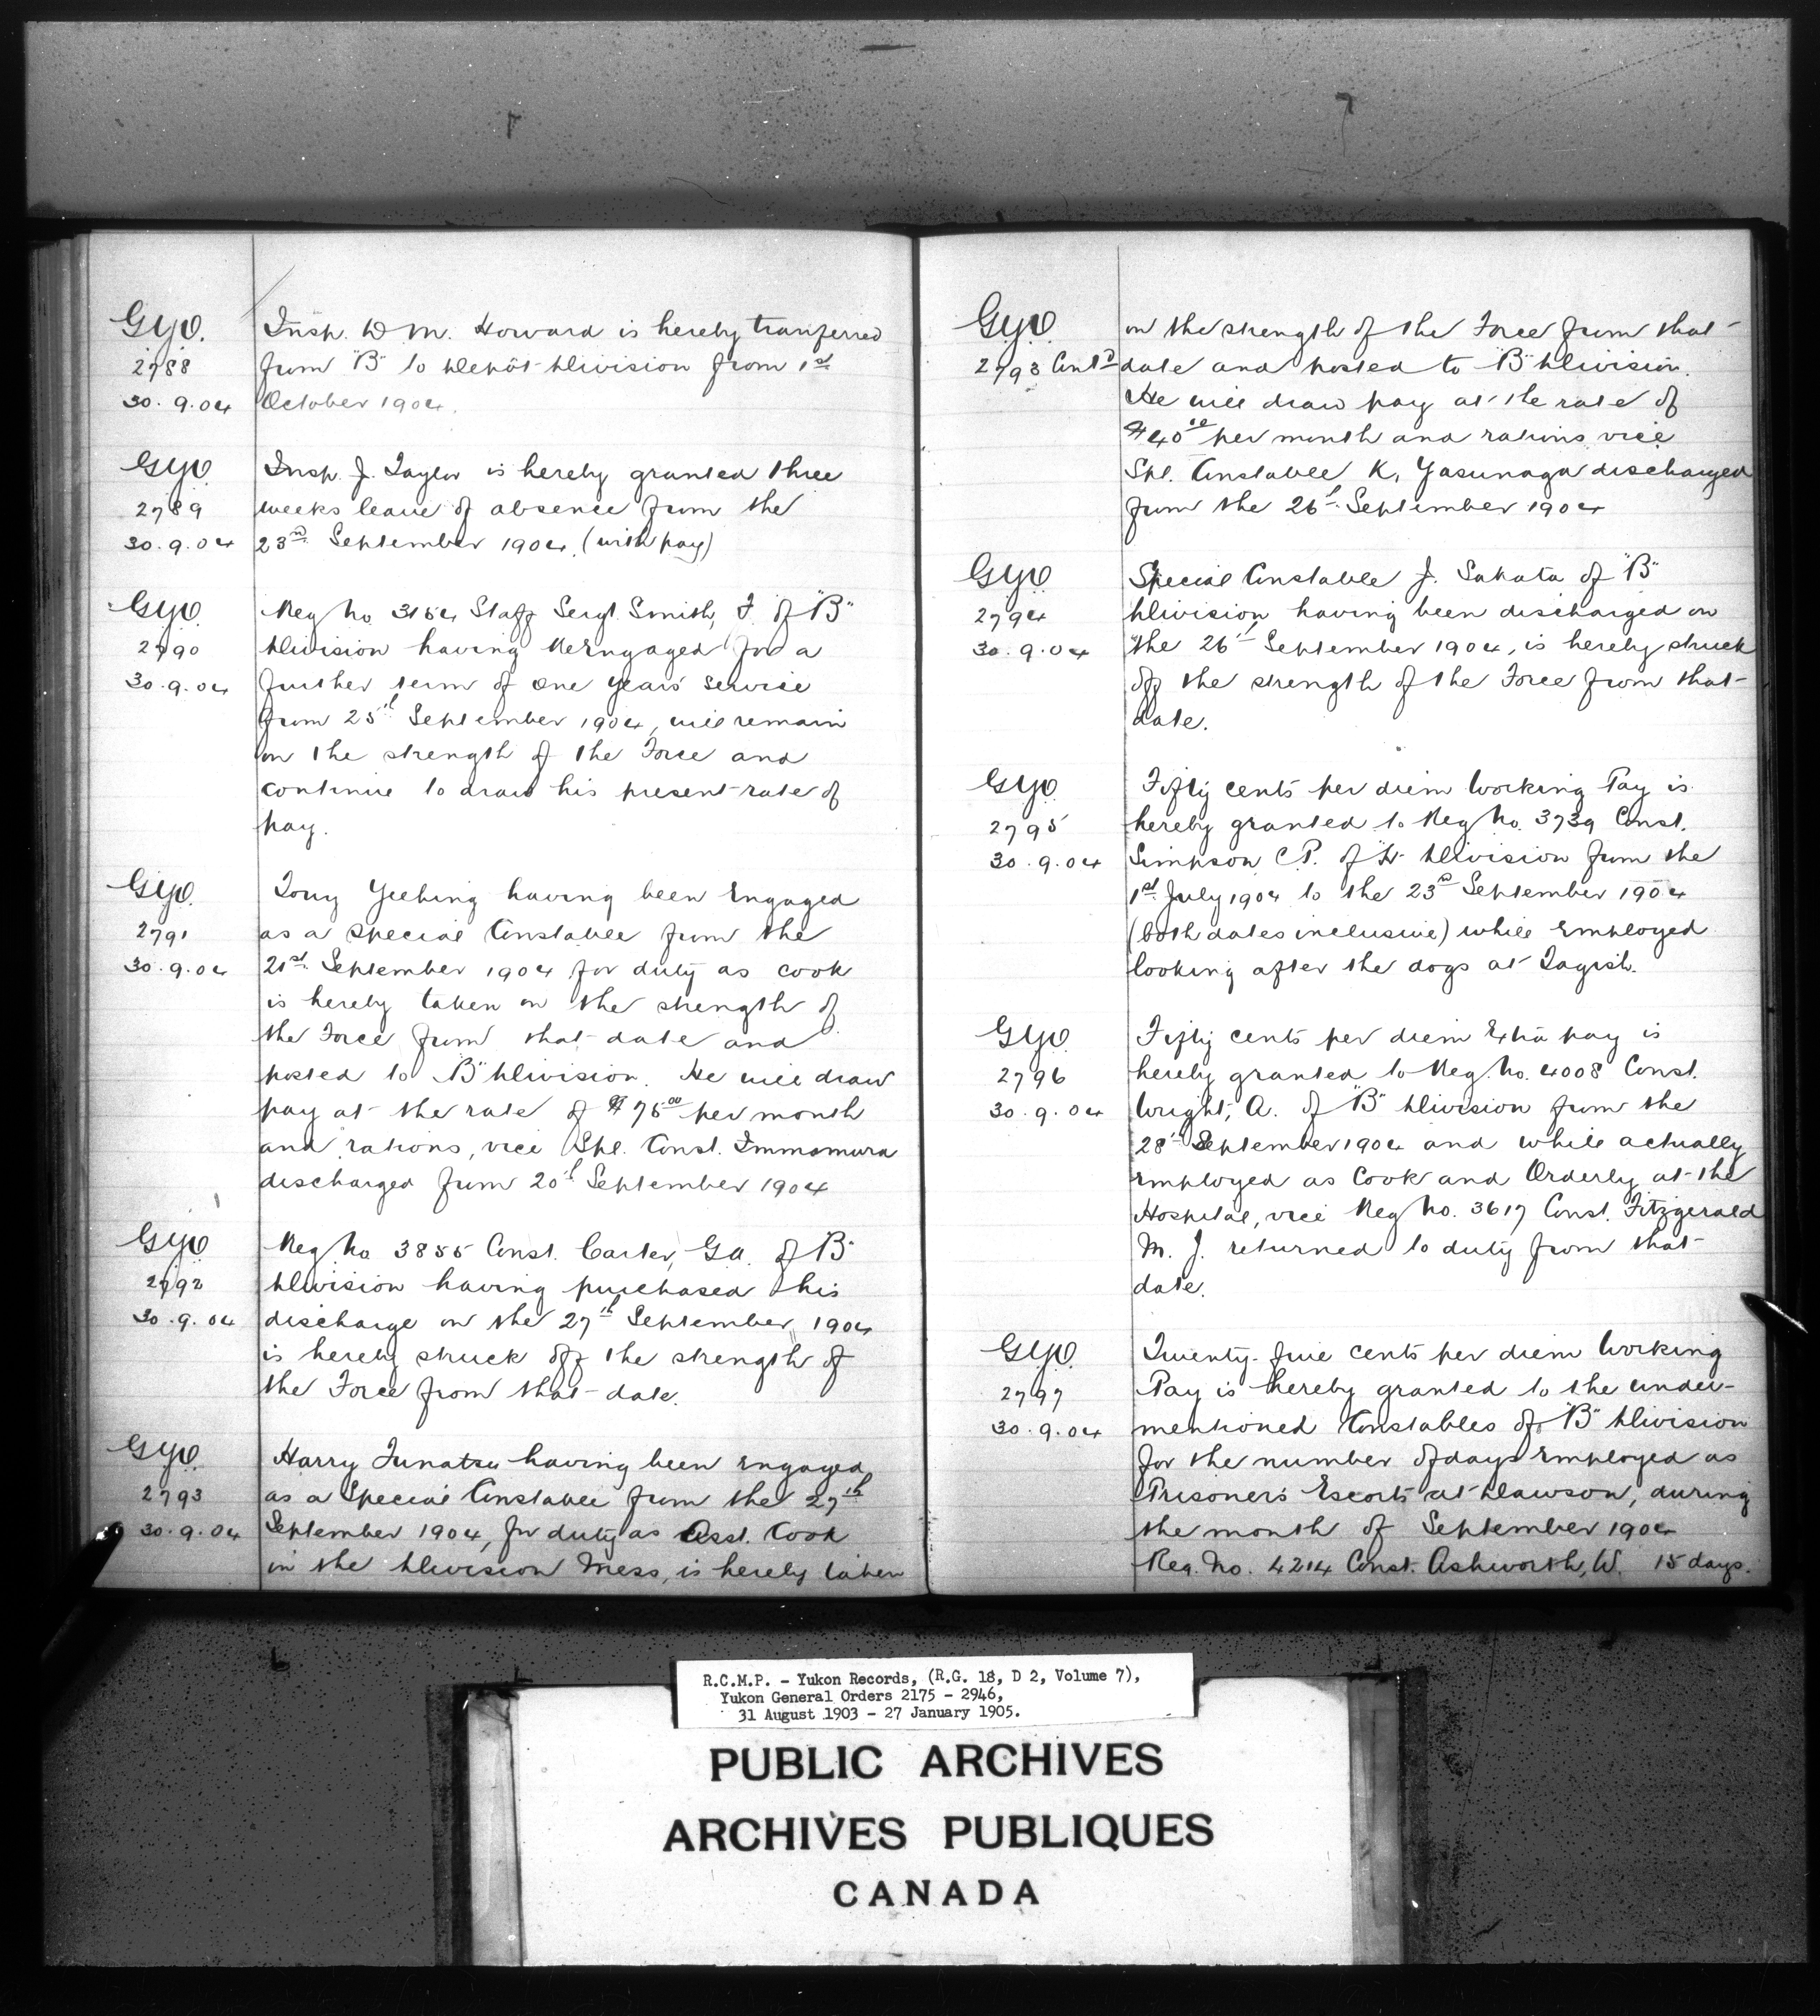 G.Y.O.
2788
30.9.04
Insp. D M. Howard is hereby tranferred
from "B" to Depôt Division from 1st
October 1904.
G.Y.O.
2789
30.9.04
Insp. J. Taylor is hereby granted three
weeks leave of absence from the
23rd September 1904. (with pay)
G.Y.O.
2790
30.9.04
Reg No 3154 Staff Sergt. Smith, F. of "B"
Division having Reengaged for a
further term of one years service
from 25th September 1904, will remain
on the strength of the Force and
continue to draw his present rate of
pay.
G.Y.O.
2791
30.9.04
Tony Yeehing having been Engaged
as a Special Constable from the
21st September 1904 for duty as cook
is hereby taken on the strength of
the Force from that date and
posted to "B" Division. He will draw
pay at the rate of $75.00 per month
and rations, vice Spl. Const. Immamura
discharged from 20th September 1904
G.Y.O.
2792
30.9.04
Reg No 3855 Const. Carter, G.A. of "B"
Division having purchased his
discharge on the 27th September 1904
is hereby struck off the strength of
the Force from that date.
G.Y.O.
2793
30.9.04
Harry Funatsu having been engaged
as a Special Constable from the 27th
September 1904, for duty as Asst. Cook
in the Division Mess, is hereby taken
G.Y.O.
2793 Contd
on the strength of the Force from that
date and posted to "B" Division.
He will draw pay at the rate of
$40.00 per month and rations vice
Spl. Constable K. Yasunaga discharged
from the 26th September 1904
G.Y.O.
2794
30.9.04
Special Constable J. Sakata of "B"
Division having been discharged on
the 26th September 1904, is hereby struck
off the strength of the Force from that
date.
G.Y.O.
2795
30.9.04
Fifty cents per diem Working Pay is
hereby granted to Reg No. 3739 Const.
Simpson C.P. of "H" Division from the
1st July 1904 to the 23rd September 1904
(both dates inclusive) while Employed
looking after the dogs at Tagish.
G.Y.O.
2796
30.9.04
Fifty cents per diem Extra pay is
hereby granted to Reg. No. 4008 Const.
Wright, A. of "B" Division from the
28th September 1904 and while actually
employed as Cook and Orderly at the
Hospital, vice Reg No. 3617 Const. Fitzgerald
M. J. returned to duty from that
date.
G.Y.O.
2797
30.9.04
Twenty-five cents per diem Working
Pay is hereby granted to the under-
mentioned Constables of "B" Division
for the number of days Employed as
Prisoners Escorts at Dawson, during
the month of September 1904
Reg. No. 4214 Const. Ashworth, W. 15 days.
R.C.M.P. - Yukon Records, (R.G. 18, D 2, Volume 7),
Yukon General Orders 2175 - 2946,
31 August 1903 - 27 January 1905.
PUBLIC ARCHIVES
ARCHIVES PUBLIQUES
CANADA